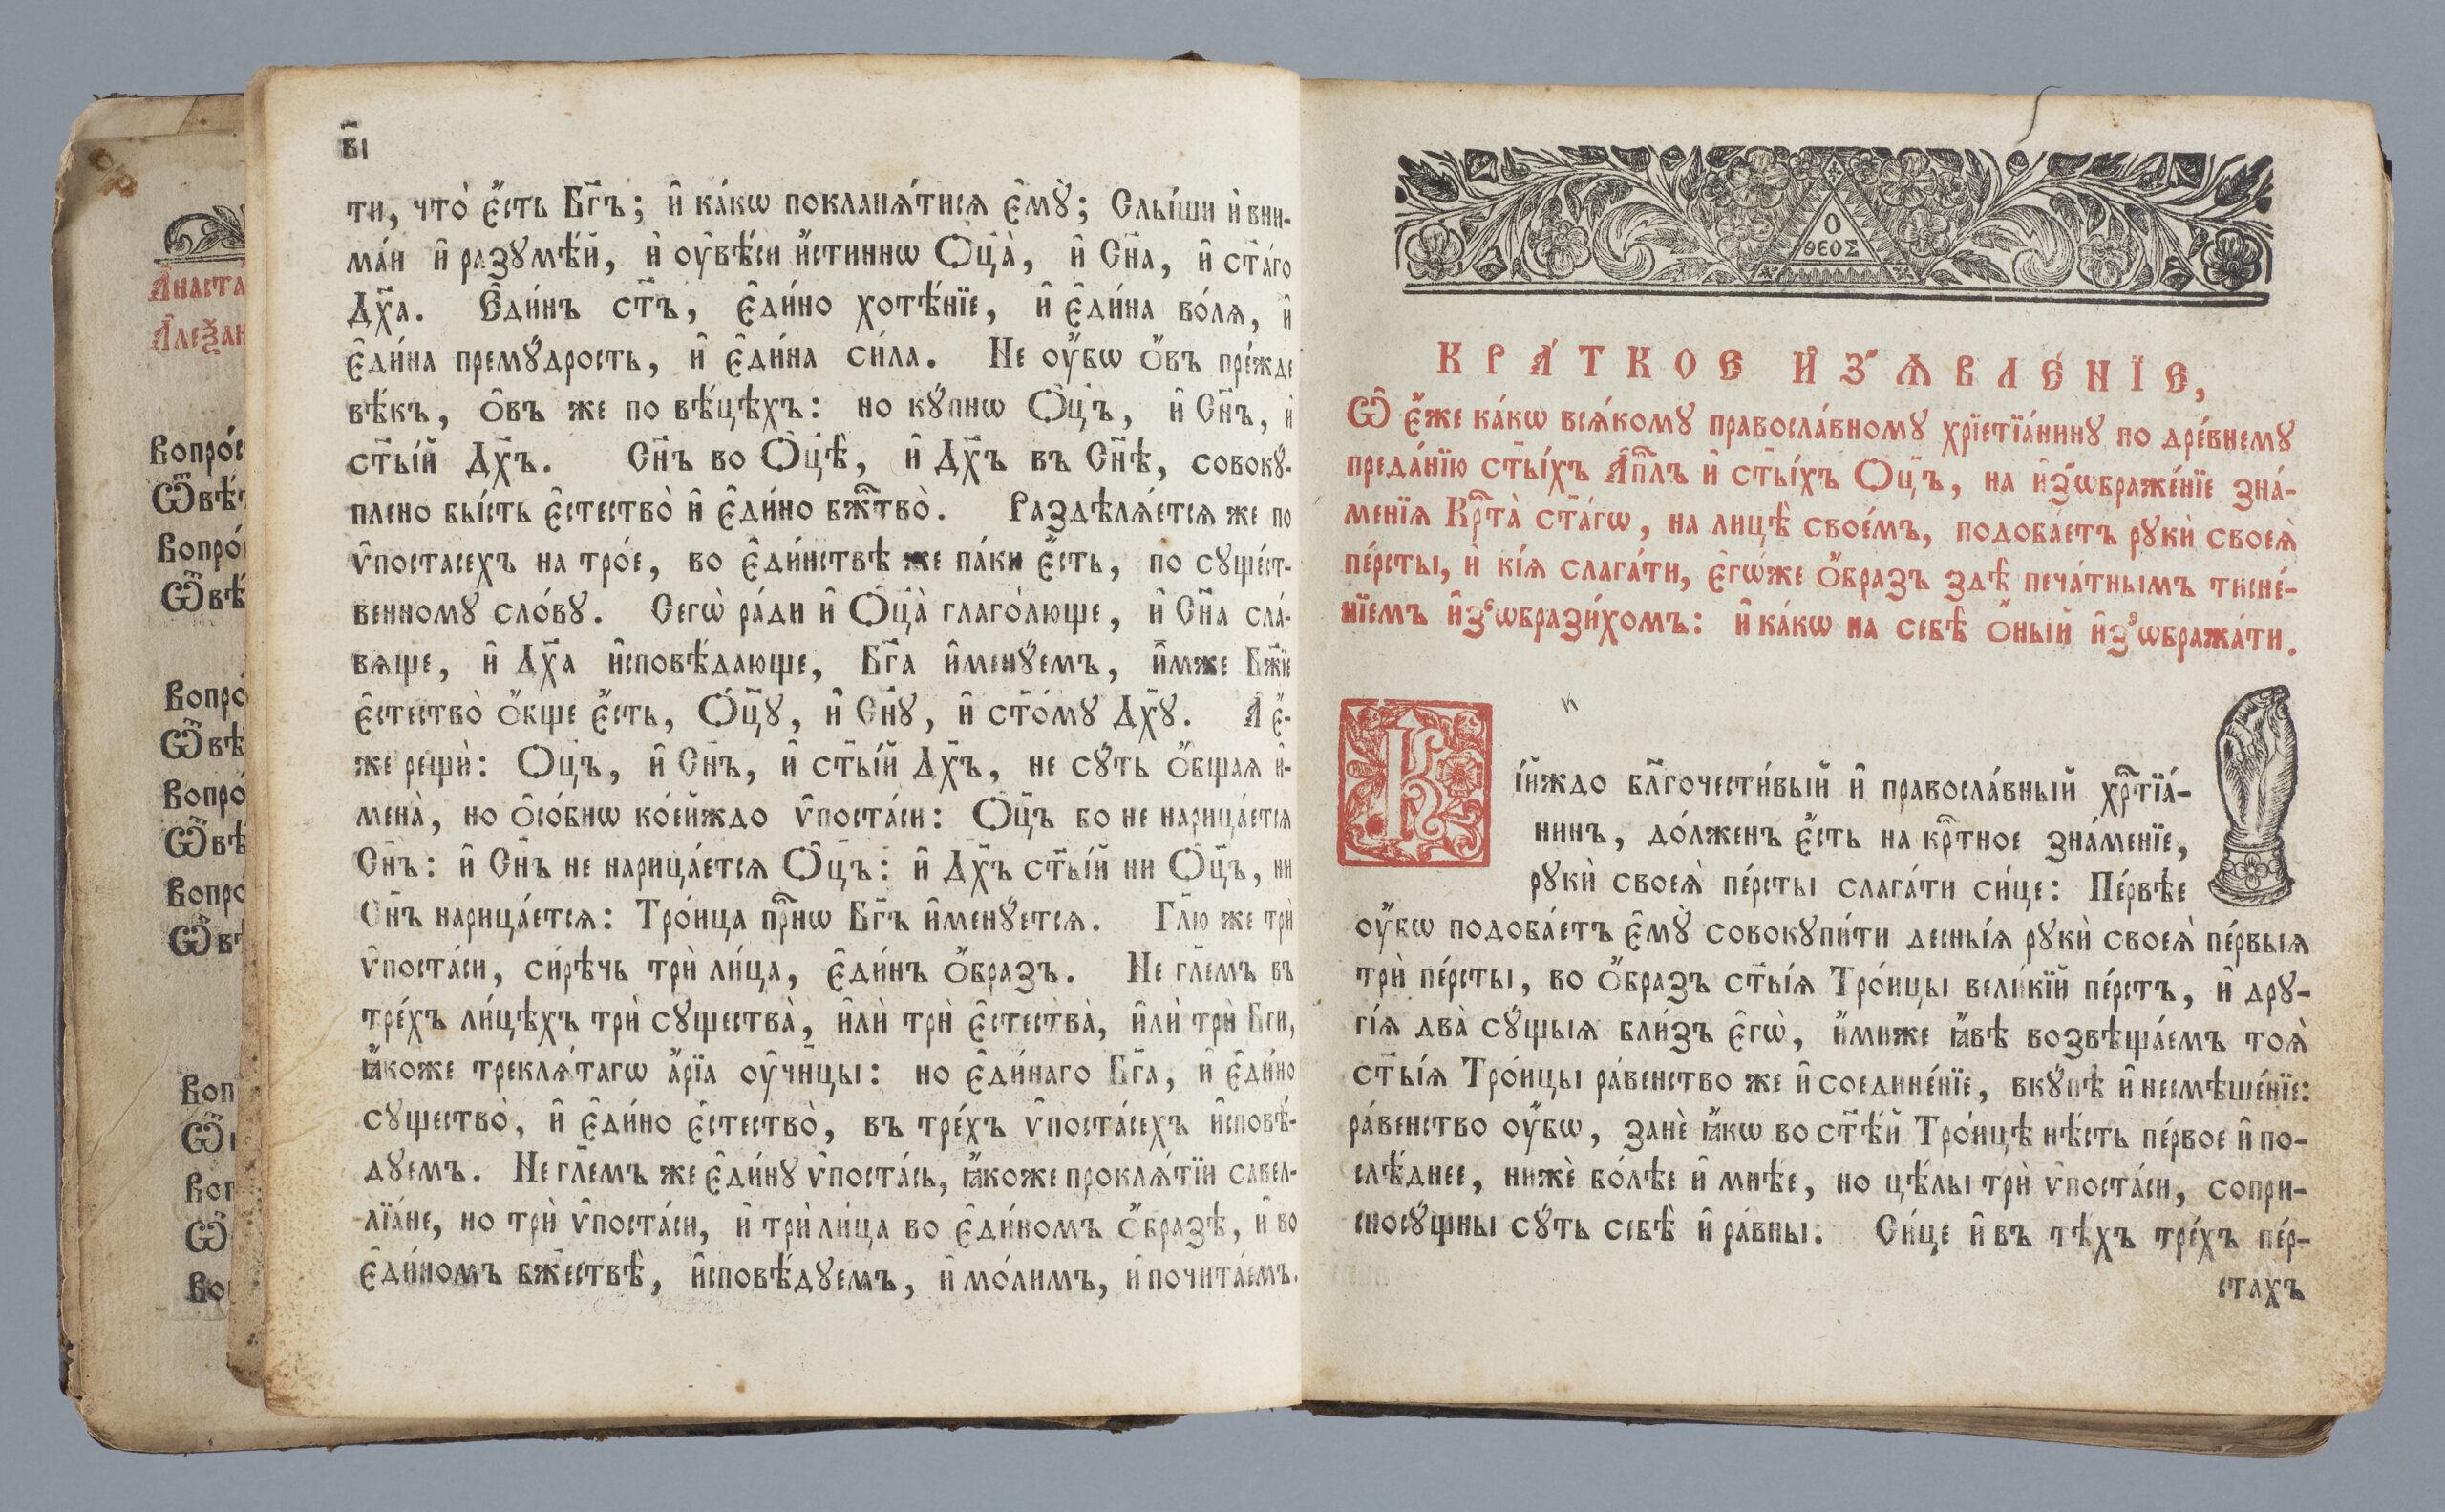 Анаста
Алеѯан
Вопро́с
Ѿвѣ́т
Вопро́
Ѿвѣ́
Вопро́
Ѿвѣ́
Вопро́
Ѿвѣ́
Вопро́
Ѿвѣ
Воп
Ѿ
Воп
Ѿ
Во
в҃і
ти, что̀ є҆́сть Бг҃ъ; и҆ ка́кѡ покланѧ́тисѧ є҆мꙋ̀; Слы́ши и҆ вни-
ма́й и҆ разꙋмѣ́й, и҆ оу҆вѣ́си и҆́стиннѡ Ѻ҆ц҃а̀, и҆ Сн҃а, и҆ ст҃а́го
Дх҃а. Є҆ди́нъ ст҃ъ, є҆ди́но хотѣ́нїе, и҆ є҆ди́на во́лѧ, и҆
є҆ди́на премꙋ́дрость, и҆ є҆ди́на си́ла. Не оу҆́бѡ ѻ҆́въ пре́жде
вѣ́къ, ѻ҆́въ же по вѣ́цѣхъ: но кꙋ́пнѡ Ѻ҆ц҃ъ, и҆ Сн҃ъ, и҆
ст҃ы́й Дх҃ъ. Сн҃ъ во Ѻ҆ц҃ѣ̀, и҆ Дх҃ъ въ Сн҃ѣ, совокꙋ-
плено бы́сть є҆стество̀ и҆ є҆ди́но бж҃тво̀. Раздѣлѧ́етсѧ же по
ѵ҆постасехъ на тро́е, во є҆ди́нствѣ же па́ки є҆́сть, по сꙋще́ст-
венномꙋ сло́вꙋ. Сегѡ̀ ра́ди и҆ Ѻ҆ц҃а̀ глаго́люще, и҆ Сн҃а сла́-
вѧще, и҆ Дх҃а и҆сповѣ́дающе, Бг҃а и҆менꙋ́емъ, и҆́мже Бж҃їе
є҆стество̀ ѻ҆́бще є҆́сть, Ѻ҆ц҃ꙋ̀, и҆ Сн҃ꙋ, и҆ ст҃о́мꙋ Дх҃ꙋ. А҆ є҆́-
же рещѝ: Ѻ҆ц҃ъ, и҆ Сн҃ъ, и҆ ст҃ы́й Дх҃ъ, не сꙋ́ть ѻ҆́бщаѧ и҆-
мена̀, но ѻ҆со́бнѡ ко́ейждо ѵ҆поста́си: Ѻ҆ц҃ъ бо не нарица́етсѧ
Сн҃ъ: и҆ Сн҃ъ не нарица́етсѧ Ѻ҆ц҃ъ: и҆ Дх҃ъ ст҃ы́й ни Ѻ҆ц҃ъ, ни
Сн҃ъ нарица́етсѧ: Тро́ица прⷭ҇нѡ Бг҃ъ и҆менꙋ́етсѧ. Гл҃ю же трѝ
ѵ҆поста́си, си́рѣчь трѝ ли́ца, є҆ди́нъ ѻ҆́бразъ. Не гл҃емъ въ
тре́хъ ли́цѣхъ трѝ сꙋщества̀, и҆лѝ трѝ є҆стества̀, и҆лѝ трѝ Бг҃и,
ꙗ҆́коже треклѧ́тагѡ а҆́рїа оу҆чн҃цы: но є҆ди́наго Бг҃а, и҆ є҆ди́но
сꙋщество̀, и҆ є҆ди́но є҆стество̀, въ тре́хъ ѵ҆поста́сехъ и҆сповѣ́-
дꙋемъ. Не гл҃емъ же є҆ди́нꙋ ѵ҆поста́сь, ꙗ҆́коже проклѧ́тїи савел-
лїа́не, но трѝ ѵ҆поста́си, и҆ трѝ ли́ца во є҆ди́номъ ѻ҆́бразѣ, и҆ во
є҆ди́номъ бж҃ествѣ̀, и҆сповѣ́дꙋемъ, и҆ мо́лимъ, и҆ почита́емъ.
Ο
ΘΕΟΣ
КРА́ТКОЕ И҆З̾ѦВЛЕ́НЇЕ,
Ѽ є҆́же ка́кѡ всѧ́комꙋ правосла́вномꙋ хрїстїа́нинꙋ по дре́внемꙋ
преда́нїю ст҃ы́хъ А҆пⷭ҇лъ и҆ ст҃ы́хъ Ѻц҃ъ, на и҆з̾ѡбраже́нїе зна́-
менїѧ Крⷭ҇та̀ ст҃а́гѡ, на лицѣ̀ свое́мъ, подобаетъ рꙋкѝ своеѧ̀
пе́рсты, и҆ кі́ѧ слага́ти, є҆гѡ́же ѻ҆́бразъ здѣ̀ печа́тнымъ тисне́-
нїемъ и҆з̾ѡбрази́хомъ: и҆ ка́кѡ на себѣ̀ ѻ҆́ный и҆з̾ѡбража́ти.
Кі́йждо бл҃гочести́вый и҆ правосла́вный хрⷭ҇тїа́-
нинъ, до́лженъ є҆́сть на крⷭ҇тное зна́менїе,
рꙋкѝ своеѧ̀ пе́рсты слага́ти си́це: Пе́рвѣе
оу҆́бѡ подоба́етъ є҆мꙋ̀ совокꙋпи́ти десны́ѧ рꙋкѝ своеѧ̀ пе́рвыѧ
трѝ пе́рсты, во ѻ҆́бразъ ст҃ы́ѧ Тро́ицы вели́кїй пе́рстъ, и҆ дрꙋ-
гі́ѧ два̀ сꙋ́щыѧ бли́зъ є҆гѡ̀, и҆́миже ꙗ҆́вѣ возвѣща́емъ тоѧ̀
ст҃ы́ѧ Тро́ицы ра́венство же и҆ соедине́нїе, вкꙋ́пѣ и҆ несмѣше́нїе:
ра́венство оу҆́бѡ, занѐ ꙗ҆́кѡ во ст҃ѣ́й Тро́ицѣ нѣ́сть пе́рвое и҆ по-
слѣ́днее, нижѐ бо́лѣе и҆ мнѣе, но цѣ́лы трѝ ѵ҆поста́си, сопри-
сносꙋ́щны сꙋ́ть себѣ̀ и҆ ра́вны: Си́це и҆ въ тѣ́хъ тре́хъ пе́р-
стахъ